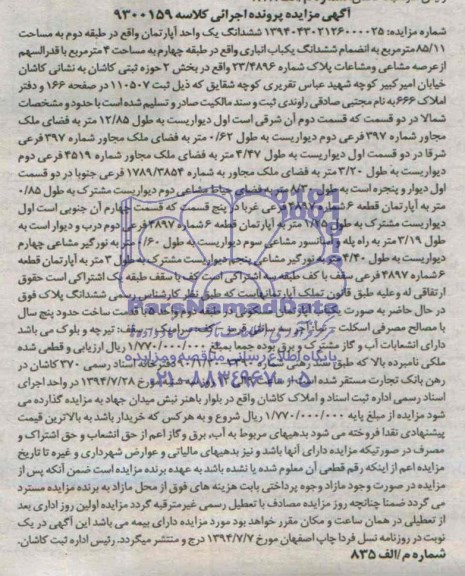 آگهی مزایده پرونده اجرائی کلاسه ۹۳۰۰۱۵۹
شماره مزایده: ۱۳۹۴۰۴۳۰۲۱۲۶۰۰۰۰۲۵ ششدانگ یک واحد آپارتمان واقع در طبقه دوم به مساحت
۸۵/۱۱ مترمربع به انضمام ششدانگ یکباب انباری واقع در طبقه چهارم به مساحت ۴ مترمربع با قدرالسهم
از عرصه مشاعی ومشاعات پلاک شماره ۲۳/۴۸۹۶ واقع در بخش ۲ حوزه ثبتی کاشان به نشانی کاشان
خیابان امیر کبیر کوچه شهید عباس تقریری کوچه شقایق که ذیل ثبت ۱۱۰۵۰۷ در صفحه ۱۶۶ و دفتر
املاک ۶۶۶ به نام مجتبی صادقی راوندی ثبت و سند مالکیت صادر و تسلیم شده است با حدود و مشخصات
شمالا در دو قسمت که قسمت دوم آن شرقی است اول دیواریست به طول ۱۲/۸۵ متر به فضای ملک
مجاور شماره ۳۹۷ فرعی دوم دیواریست به طول ۰/۶۲ متر به فضای ملک مجاور شماره ۳۹۷ فرعی
شرقا در دو قسمت اول دیواریست به طول ۴/۴۷ متر به فضای ملک مجاور شماره ۴۵۱۹ فرعی دوم
دیواریست به طول ۳/۲۰ متر به فضای ملک مجاور به شماره ۱۷۸۹/۳۸۵۴ فرعی جنوبا در دو قسمت
اول دیوار و پنجره است به طول ۸/۳۰ متر به فضای حیاط مشاعی دوم دیواریست مشترک به طول ۰/۸۵
متر به آپارتمان قطعه ۶ شماره ۴۸۹۷ فرعی غربا در پنج قسمت که قسمت چهارم آن جنوبی است اول
دیواریست مشترک به طول ۱/۷۵ متر به آپارتمان قطعه ۶ شماره ۴۸۹۷ فرعی دوم درب و دیوار است به
طول ۳/۱۹ متر به راه پله و آسانسور مشاعی سوم دیواریست به طول ۰/۶۰ متر به نورگیر مشاعی چهارم
دیواریست به طول ۴/۴۰ متر به نورگیر مشاعی پنجم دیواریست مشترک به طول ۳ متر به آپارتمان قطعه
۶ شماره ۴۸۹۷ فرعی سقف با کف طبقه سه اشتراکی است کف با سقف طبقه یک اشتراکی است حقوق
ارتفاقی له وعلیه طبق قانون تملک آپارتمانهاست که طبق نظر کارشناس رسمی ششدانگ پلاک فوق
در حال حاضر به صورت یک واحد آپارتمان طبقه دوم قدمت ساخت حدود پنج سال
با مصالح مصرفی اسکلت سقف: تیرچه و بلوک می باشد
دارای انشعابات آب و گاز مشترک و برق بوده جمعا بمبلغ ۱/۷۷۰/۰۰۰/۰۰۰ ریال ارزیابی و قطعی شده
ملکی نامبرده بالا که طبق سند رهنی شماره دفترخانه اسناد رسمی ۳۷۰ کاشان در
رهن بانک تجارت مستقر شده است از ساعت مورخ ۱۳۹۴/۷/۲۸ در واحد اجرای
اسناد رسمی اداره ثبت اسناد و املاک کاشان واقع در بلوار باهنر نبش میدان جهاد به مزایده گذارده می
شود مزایده از مبلغ پایه ۱/۷۷۰/۰۰۰/۰۰۰ ریال شروع و به هر کس که خریدار باشد به بالاترین قیمت
پیشنهادی نقدا فروخته می شود بدهیهای مربوط به آب، برق و گاز اعم از حق انشعاب و حق اشتراک و
مصرف در صورتیکه مزایده دارای آنها باشد و نیز بدهیهای مالیاتی و عوارض شهرداری و غیره تا تاریخ
مزایده اعم از اینکه رقم قطعی آن معلوم شده یا نشده باشد به عهده برنده مزایده است ضمن آنکه پس از
مزایده در صورت وجود مازاد وجوه پرداختی بابت هزینه های فوق از محل مازاد به برنده مزایده مسترد
می گردد ضمنا چنانچه روز مزایده مصادف با تعطیل رسمی غیر مترقبه گردد مزایده اولین روز اداری بعد
از تعطیلی در همان ساعت و مکان مقرر خواهد بود مورد مزایده دارای بیمه می باشد این آگهی در یک
نوبت در روزنامه نسل فردا چاپ اصفهان مورخ ۱۳۹۴/۷/۷ درج و منتشر میگردد. رئیس اداره ثبت کاشان.
شماره م/الف ۸۳۵
ParsNamadData
پایگاه اطلاع رسانی مناقصه و مزایده
۰۲۱-۸۸۳۴۹۶۷۰-۵